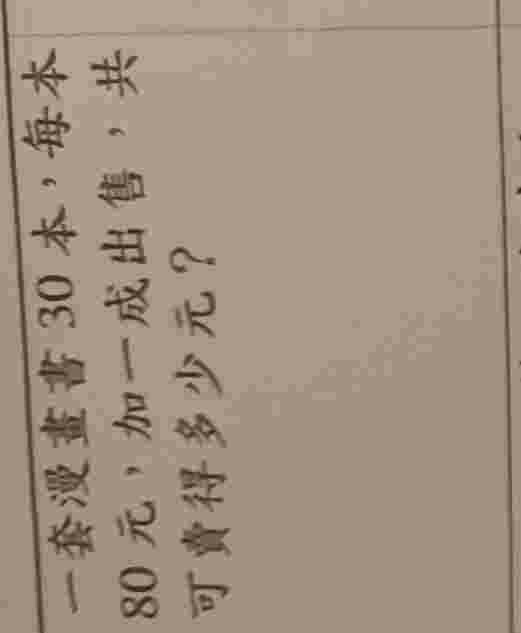 一套漫畫書30本，每本
80元，加一成出售，共
可賣得多少元？